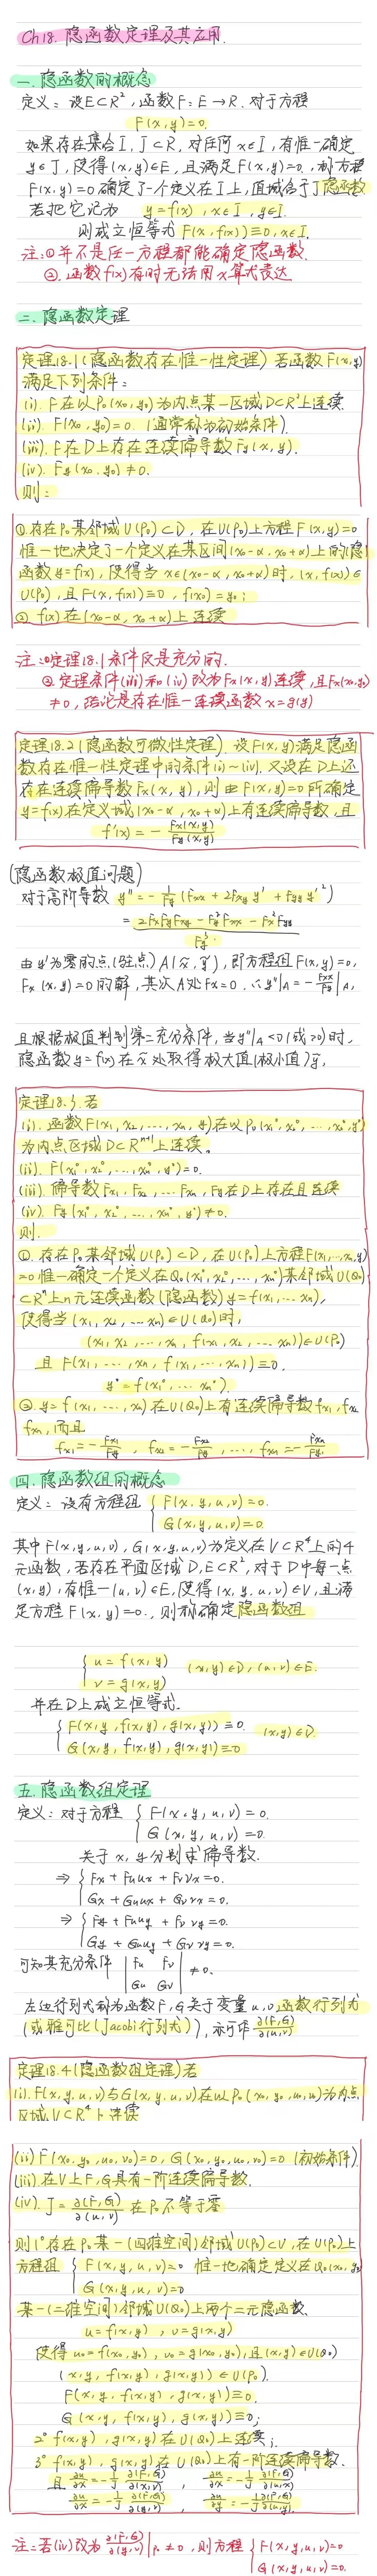 Ch18. 隐函数定理及其应用.
一. 隐函数的概念
定义: 设E⊂R², 函数 F: E→R. 对于方程
F(x,y)=0.
如果存在集合 I, J⊂R, 对任何 x∈I, 有惟一确定
y∈J, 使得 (x,y)∈E, 且满足 F(x,y)=0, 称方程
F(x,y)=0 确定了一个定义在 I 上, 值域含于J隐函数
若把它记为 y=f(x), x∈I, y∈J.
则成立恒等式 F(x,f(x))≡0, x∈I.
注: ①并不是任一方程都能确定隐函数.
②. 函数f(x)有时无法用x算式表达
二. 隐函数定理
定理18.1(隐函数存在惟一性定理) 若函数F(x,y)
满足下列条件:
(i). F在以P₀(x₀,y₀)为内点某一区域D⊂R²上连续
(ii). F(x₀,y₀)=0. (通常称为初始条件).
(iii). F在D上存在连续偏导数Fy(x,y).
(iv). Fy(x₀,y₀)≠0.
则:
①.存在P₀某邻域U(P₀)⊂D, 在U(P₀)上方程F(x,y)=0
惟一地决定了一个定义在某区间(x₀-α, x₀+α)上的(隐)
函数y=f(x), 使得当x∈(x₀-α, x₀+α)时, (x,f(x))∈
U(P₀), 且F(x,f(x))≡0, f(x₀)=y₀;
② f(x)在(x₀-α, x₀+α)上连续
注: ①定理18.1条件仅是充分的.
②.定理条件(iii)和(iv)改为Fx(x,y)连续,且Fx(x₀,y₀)
≠0, 结论是存在惟一连续函数 x=g(y)
定理18.2(隐函数可微性定理). 设F(x,y)满足隐函
数存在惟一性定理中的条件(i)~(iv), 又设在D上还
存在连续偏导数Fx(x,y), 则由F(x,y)=0所确定
y=f(x)在定义域(x₀-α, x₀+α)上有连续偏导数, 且
f'(x)=-Fx(x,y)/Fy(x,y)
(隐函数极值问题)
对于高阶导数 y''=-1/Fy(Fxx+2Fxy y'+Fyy y'²)
=(2FxFyFxy-Fy²Fxx-Fx²Fyy)/Fy³.
由y'为零的点(驻点)A(x̃,ỹ), 即方程组F(x,y)=0,
Fx(x,y)=0的解, 其次A处Fx=0. ∴y''|A=-Fxx/Fy|A,
且根据极值判别第二充分条件, 当y''|A<0(或>0)时,
隐函数y=f(x)在x̃处取得极大值(极小值)ỹ,
定理18.3. 若
(i). 函数F(x₁,x₂,...,xn,y)在以P₀(x₁⁰,x₂⁰,...,xn⁰,y⁰)
为内点区域D⊂Rⁿ⁺¹上连续.
(ii). F(x₁⁰,x₂⁰,...,xn⁰,y⁰)=0.
(iii). 偏导数Fx₁,Fx₂,...Fxn,Fy在D上存在且连续
(iv). Fy(x₁⁰,x₂⁰,...,xn⁰,y⁰)≠0.
则.
①. 存在P₀某邻域U(P₀)⊂D, 在U(P₀)上方程F(x₁,...,xn,y)
=0惟一确定一个定义在Q₀(x₁⁰,x₂⁰,...,xn⁰)某邻域U(Q₀)
⊂Rⁿ上n元连续函数(隐函数)y=f(x₁,...xn),
使得当(x₁,x₂,...xn)∈U(Q₀)时,
(x₁,x₂,...xn,f(x₁,x₂,...xn))∈U(P₀)
且F(x₁,...,xn,f(x₁,...,xn))≡0.
y⁰=f(x₁⁰,...xn⁰)
②.y=f(x₁,...,xn)在U(Q₀)上有连续偏导数fx₁,fx₂
fxn, 而且
fx₁=-Fx₁/Fy, fx₂=-Fx₂/Fy, ..., fxn=-Fxn/Fy.
四. 隐函数组的概念
定义: 设有方程组 { F(x,y,u,v)=0.
G(x,y,u,v)=0.
其中F(x,y,u,v), G(x,y,u,v)为定义在V⊂R⁴上的4
元函数, 若存在平面区域D,E⊂R², 对于D中每一点
(x,y), 有惟一(u,v)∈E, 使得(x,y,u,v)∈V, 且满
足方程F(x,y)=0., 则称确定隐函数组
{ u=f(x,y) (x,y)∈D, (u,v)∈E.
v=g(x,y)
并在D上成立恒等式.
{ F(x,y,f(x,y),g(x,y))≡0. (x,y)∈D.
G(x,y,f(x,y),g(x,y))≡0
五. 隐函数组定理
定义: 对于方程 { F(x,y,u,v)=0.
G(x,y,u,v)=0.
关于x,y分别求偏导数.
⇒ { Fx+Fuux+Fvvx=0.
Gx+Guux+Gvvx=0.
⇒ { Fy+Fuuy+Fvvy=0.
Gy+Guuy+Gvvy=0.
可知其充分条件 |Fu Fv|
|Gu Gv| ≠0.
左边行列式称为函数F,G关于变量u,v函数行列式
(或雅可比(Jacobi行列式)), 亦可作 ∂(F,G)/∂(u,v)
定理18.4(隐函数组定理)若
(i). F(x,y,u,v)与G(x,y,u,v)在以P₀(x₀,y₀,u₀,v₀)为内点
区域V⊂R⁴上连续
(ii)F(x₀,y₀,u₀,v₀)=0, G(x₀,y₀,u₀,v₀)=0 (初始条件).
(iii). 在V上F,G具有一阶连续偏导数.
(iv). J=∂(F,G)/∂(u,v) 在P₀不等于零
则1°存在P₀某一(四维空间)邻域U(P₀)⊂V, 在U(P₀)上
方程组 { F(x,y,u,v)=0 惟一地确定定义在Q₀(x₀,y₀)
G(x,y,u,v)=0
某一(二维空间)邻域U(Q₀)上两个二元隐函数.
u=f(x,y), v=g(x,y)
使得u₀=f(x₀,y₀), v₀=g(x₀,y₀), 且(x,y)∈U(Q₀)
(x,y,f(x,y),g(x,y))∈U(P₀).
F(x,y,f(x,y),g(x,y))≡0.
G(x,y,f(x,y),g(x,y))≡0;
2° f(x,y), g(x,y)在U(Q₀)上连续;
3° f(x,y), g(x,y)在U(Q₀)上有一阶连续偏导数.
且 ∂u/∂x=-1/J ∂(F,G)/∂(x,v), ∂v/∂x=-1/J ∂(F,G)/∂(u,x)
∂u/∂y=-1/J ∂(F,G)/∂(y,v), ∂v/∂y=-1/J ∂(F,G)/∂(u,y).
注: 若(iv)改为 ∂(F,G)/∂(y,v)|P₀≠0, 则方程 { F(x,y,u,v)=0
G(x,y,u,v)=0.